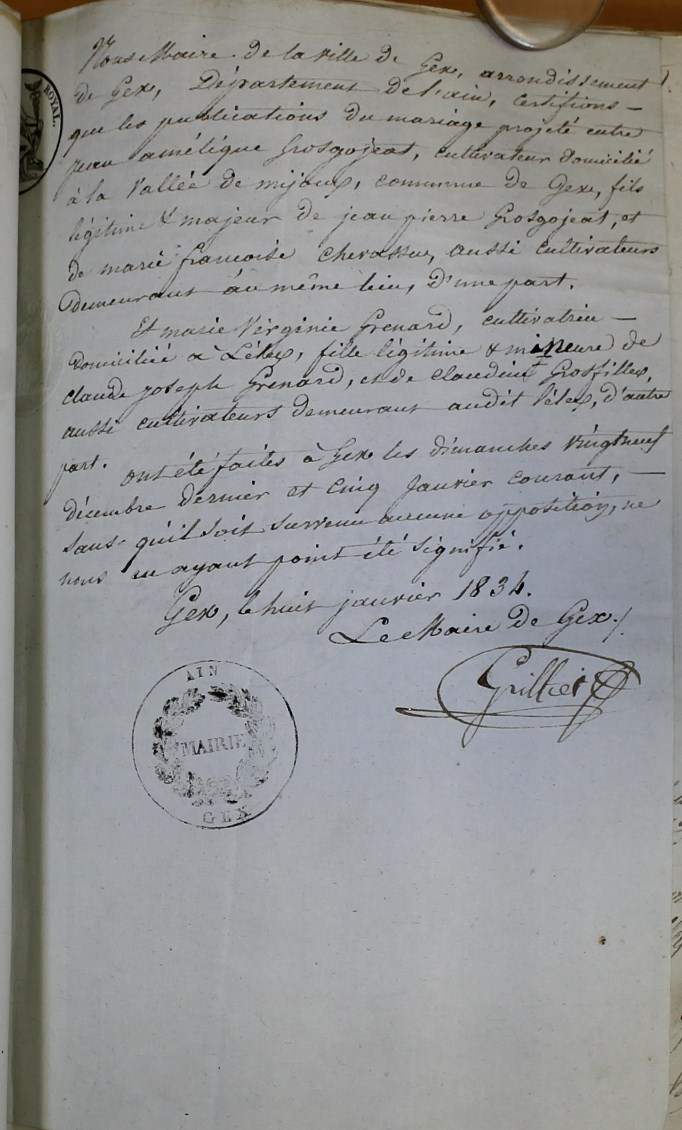 ROYAL.
Nous Maire de la ville de Gex, arrondissement
de Gex, Département de l'ain, certifions —
que les publications du mariage projeté entre
jean amélique Grosgojeat, cultivateur domicilié
à la vallée de mijoux, commune de Gex, fils
légitime & majeur de jean pierre Grosgojeat, et
de marie françoise chevassu, aussi cultivateurs
demeurant au même lieu, d'une part.
Et marie Virginie Grenard, cultivatrice —
domiciliée à Lélex, fille légitime & mineure de
claude joseph Grenard, et de claudine Grosfillex,
aussi cultivateurs demeurant audit lélex, d'autre
part. ont été faites à Gex les dimanches vingtneuf
décembre dernier et cinq janvier courant, —
sans qu'il soit survenu aucune opposition, ne
nous en ayant point été signifié.
Gex, le huit janvier 1834.
Le Maire de Gex,
Grillier
AIN
MAIRIE
GEX